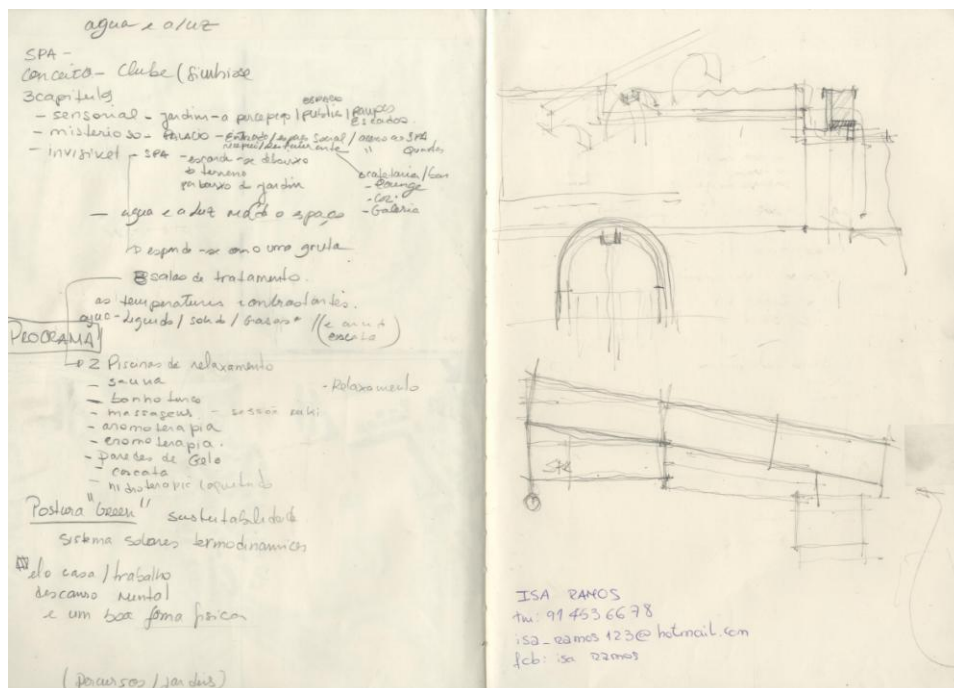 agua e a luz
SPA -
conceito - Clube (Simbiose
3 capitulos
- sensorial - jardim - a percepção / espaço publico / rampas escadas.
- misterioso - PALACO - Entrada / espaço social / acesso ao SPA,
" Quartos
- invisivel - SPA - esconde-se debaixo
do terreno
por baixo do jardim
cafetaria / bar
- Lounge
- Galeria
- agua e a luz o espaço
expande-se como uma gruta
salas de tratamento.
as temperaturas contrastantes.
agua - Liquido / solido / Gasoso
PROGRAMA
2 Piscinas de relaxamento
- sauna
- banho turco
- Relaxamento
- massagens -
- aromoterapia
- cromoterapia.
- Paredes de Gelo
- cascata
- hidroterapia
Postura "Green" sustentabilidade
sistema solares termodinamicos
elo casa / trabalho
descanso mental
e um boa forma fisica
(Percursos / jardins)
SPA
ISA RAMOS
tm: 91 453 66 78
isa_ramos123@hotmail.com
fcb: isa ramos